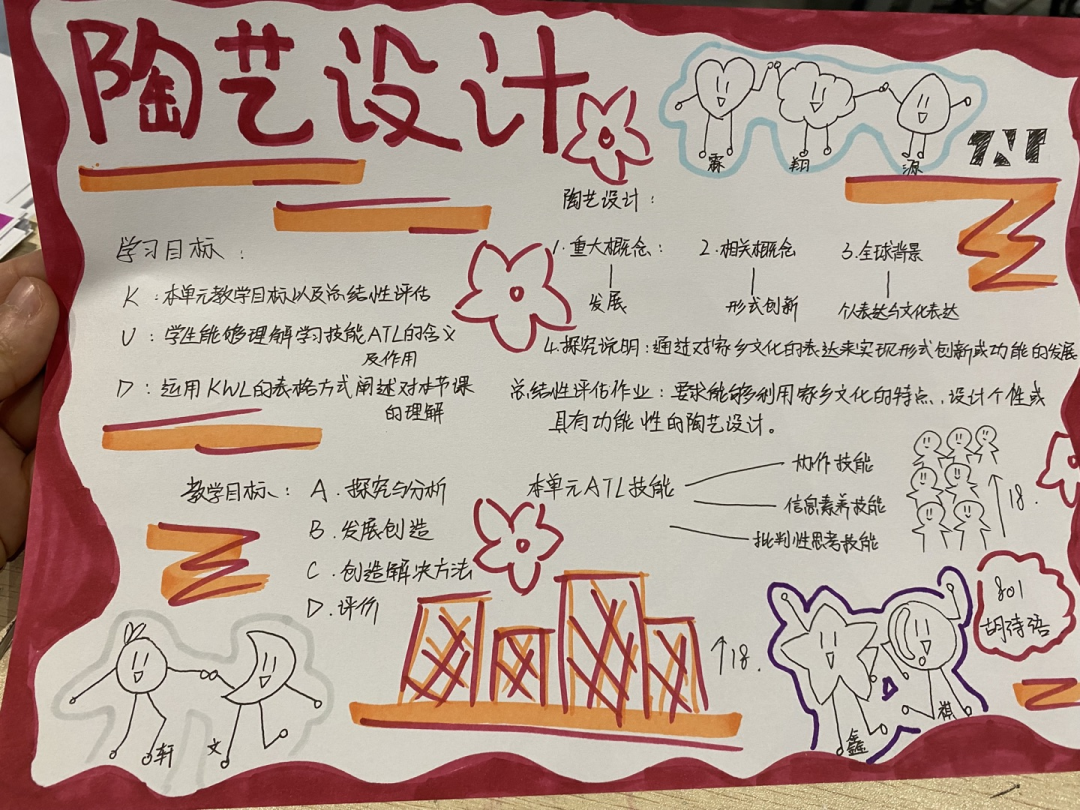 陶艺设计
霖 翔 源
TNT
学习目标：
K：本单元教学目标以及总结性评估
U：学生能够理解学习技能ATL的含义
及作用
D：运用KWL的表格方式阐述对本节课
的理解
陶艺设计：
1.重大概念： 2.相关概念 3.全球背景
发展 形式创新 个人表达与文化表达
4.探究说明：通过对家乡文化的表达来实现形式创新或功能的发展
总结性评估作业：要求能够利用家乡文化的特点、设计个性或
具有功能性的陶艺设计。
教学目标：A.探究与分析
B.发展创造
C.创造解决方法
D.评价
本单元ATL技能
协作技能
信息素养技能
批判性思考技能
↑18.
↑18.
801
胡诗语
轩 文
鑫 祺